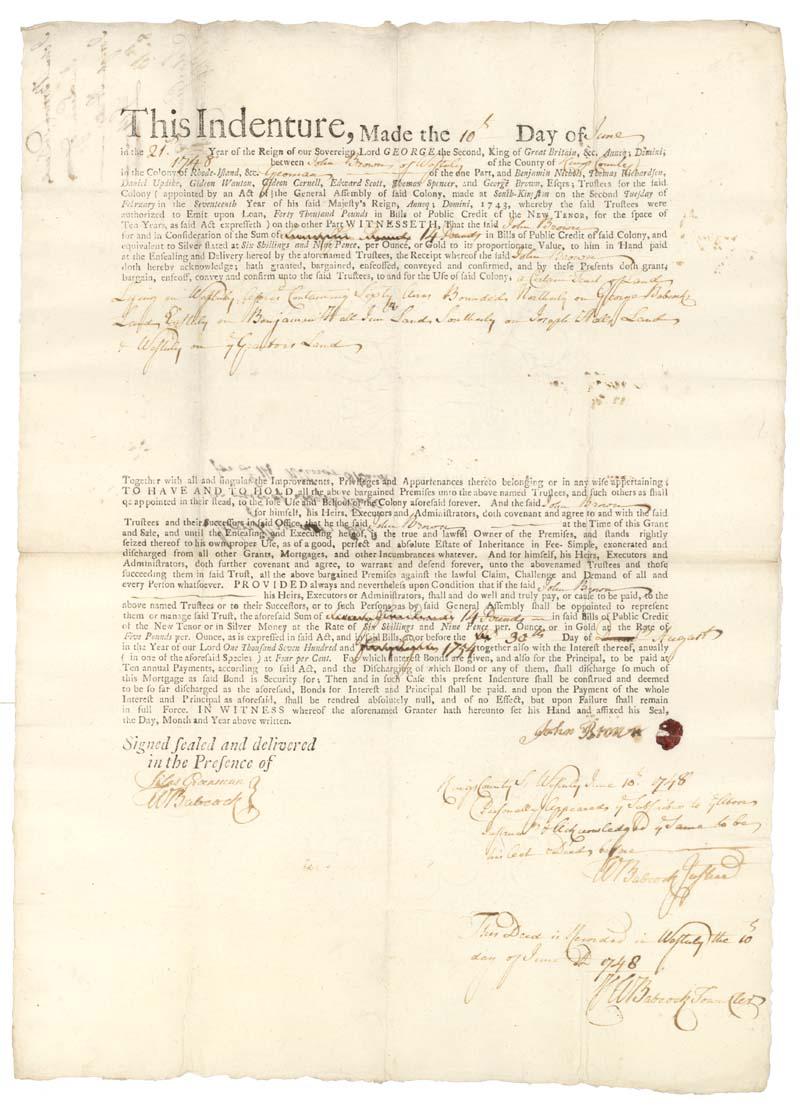 This Indenture, Made the 10th Day of June
in the 21. Year of the Reign of our Sovereign Lord GEORGE the Second, King of Great Britain, &c. Annoq; Domini,
1748 between John Brown of Westerly of the County of Kings County
in the Colony of Rhode-Island, &c. Yeoman of the one Part, and Benjamin Nichols, Thomas Richardson,
Daniel Updike, Gideon Wanton, Gideon Cornell, Edward Scott, Thomas Spencer, and George Brown, Esqrs; Trustees for the said
Colony (appointed by an Act of the General Assembly of said Colony, made at South-Kingston on the Second Tuesday of
February in the Seventeenth Year of his said Majesty's Reign, Annoq; Domini, 1743, whereby the said Trustees were
authorized to Emit upon Loan, Forty Thousand Pounds in Bills of Public Credit of the NEW TENOR, for the space of
Ten Years, as said Act expresseth) on the other Part WITNESSETH, That the said John Brown
for and in Consideration of the Sum of 14 Pounds in Bills of Public Credit of said Colony, and
equivalent to Silver stated at Six Shillings and Nine Pence, per Ounce, or Gold to its proportionate Value, to him in Hand paid
at the Ensealing and Delivery hereof by the aforenamed Trustees, the Receipt whereof the said John Brown
doth hereby acknowledge; hath granted, bargained, enfeoffed, conveyed and confirmed, and by these Presents doth grant,
bargain, enfeoff, convey and confirm unto the said Trustees, to and for the Use of said Colony, a Certain Tract of Land
Lying in Westerly Containing Sixty Acres Bounded Northerly on George Babcock
Land Easterly on Benjamin Hall Junr Land Southerly on Joseph Halls Land
& Westerly on ye Grantors Land
Together with all and singular the Improvements, Privileges and Appurtenances thereto belonging or in any wise appertaining;
TO HAVE AND TO HOLD, all the above bargained Premises unto the above named Trustees, and such others as shall
be appointed in their stead, to the sole Use and Behoof of the Colony aforesaid forever. And the said John Brown
for himself, his Heirs, Executors and Administrators, doth covenant and agree to and with the said
Trustees and their Successors in said Office, that he the said John Brown at the Time of this Grant
and Sale, and until the Ensealing and Executing hereof, is the true and lawful Owner of the Premises, and stands rightly
seized thereof to his own proper Use, as of a good, perfect and absolute Estate of Inheritance in Fee-Simple, exonerated and
discharged from all other Grants, Mortgages, and other Incumbrances whatever. And for himself, his Heirs, Executors and
Administrators, doth further covenant and agree, to warrant and defend forever, unto the abovenamed Trustees and those
succeeding them in said Trust, all the above bargained Premises against the lawful Claim, Challenge and Demand of all and
every Person whatsoever. PROVIDED always and nevertheless upon Condition that if the said John Brown
his Heirs, Executors or Administrators, shall and do well and truly pay, or cause to be paid, to the
above named Trustees or to their Successors, or to such Persons as by said General Assembly shall be appointed to represent
them or manage said Trust, the aforesaid Sum of 14 Pounds in said Bills of Public Credit
of the New Tenor or in Silver Money at the Rate of Six Shillings and Nine Pence per. Ounce, or in Gold, at the Rate of
Five Pounds per. Ounce, as is expressed in said Act, and in said Bills, on or before the 30th Day of August
in the Year of our Lord One Thousand Seven Hundred and 1754 together also with the Interest thereof, anually
(in one of the aforesaid Species) at Four per Cent. For which Interest Bonds are given, and also for the Principal, to be paid at
Ten annual Payments, according to said Act, and the Discharging of which Bond or any of them, shall discharge so much of
this Mortgage as said Bond is Security for; Then and in such Case this present Indenture shall be construed and deemed
to be so far discharged as the aforesaid, Bonds for Interest and Principal shall be paid. and upon the Payment of the whole
Interest and Principal as aforesaid, shall be rendred absolutely null, and of no Effect, but upon Failure shall remain
in full Force. IN WITNESS whereof the aforenamed Granter hath hereunto set his Hand and affixed his Seal,
the Day, Month and Year above written.
John Brown
Signed sealed and delivered
in the Presence of
Silas Greenman
W Babcock
Kings County Sc Westerly June 10th 1748
Personally Appeared ye Subscriber to ye Above
Instrumt & Acknowledged ye Same to be
his Act & Deed before
W Babcock Justice
This Deed is Recorded in Westerly the 10th
day of June AD 1748
W Babcock Town Clerk